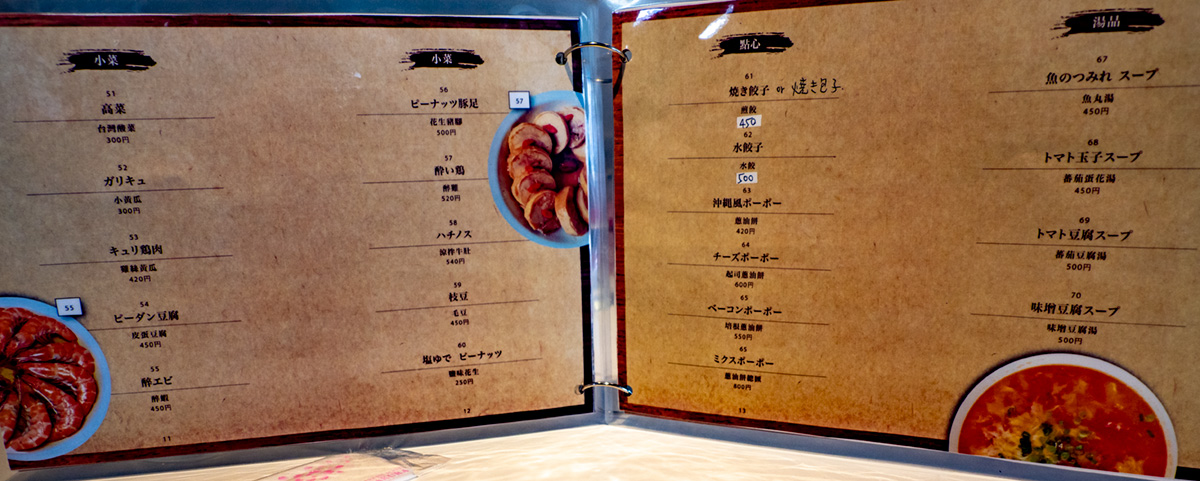 小菜
51
高菜
台灣酸菜
300円
52
ガリキュ
小黃瓜
300円
53
キュリ鶏肉
雞絲黃瓜
420円
54
ピーダン豆腐
皮蛋豆腐
450円
55
酔エビ
醉蝦
450円
55
11
小菜
56
ピーナッツ豚足
花生豬腳
500円
57
酔い鶏
醉雞
520円
57
58
ハチノス
涼拌牛肚
540円
59
枝豆
毛豆
450円
60
塩ゆで ピーナッツ
鹽味花生
250円
12
點心
61
焼き餃子 or 焼き包子
煎餃
450
62
水餃子
水餃
500
63
沖縄風ポーポー
蔥油餅
420円
64
チーズポーポー
起司蔥油餅
600円
65
ベーコンポーポー
培根蔥油餅
550円
65
ミクスポーポー
蔥油餅總匯
800円
13
湯品
67
魚のつみれ スープ
魚丸湯
450円
68
トマト玉子スープ
蕃茄蛋花湯
450円
69
トマト豆腐スープ
蕃茄豆腐湯
500円
70
味増豆腐スープ
味增豆腐湯
500円